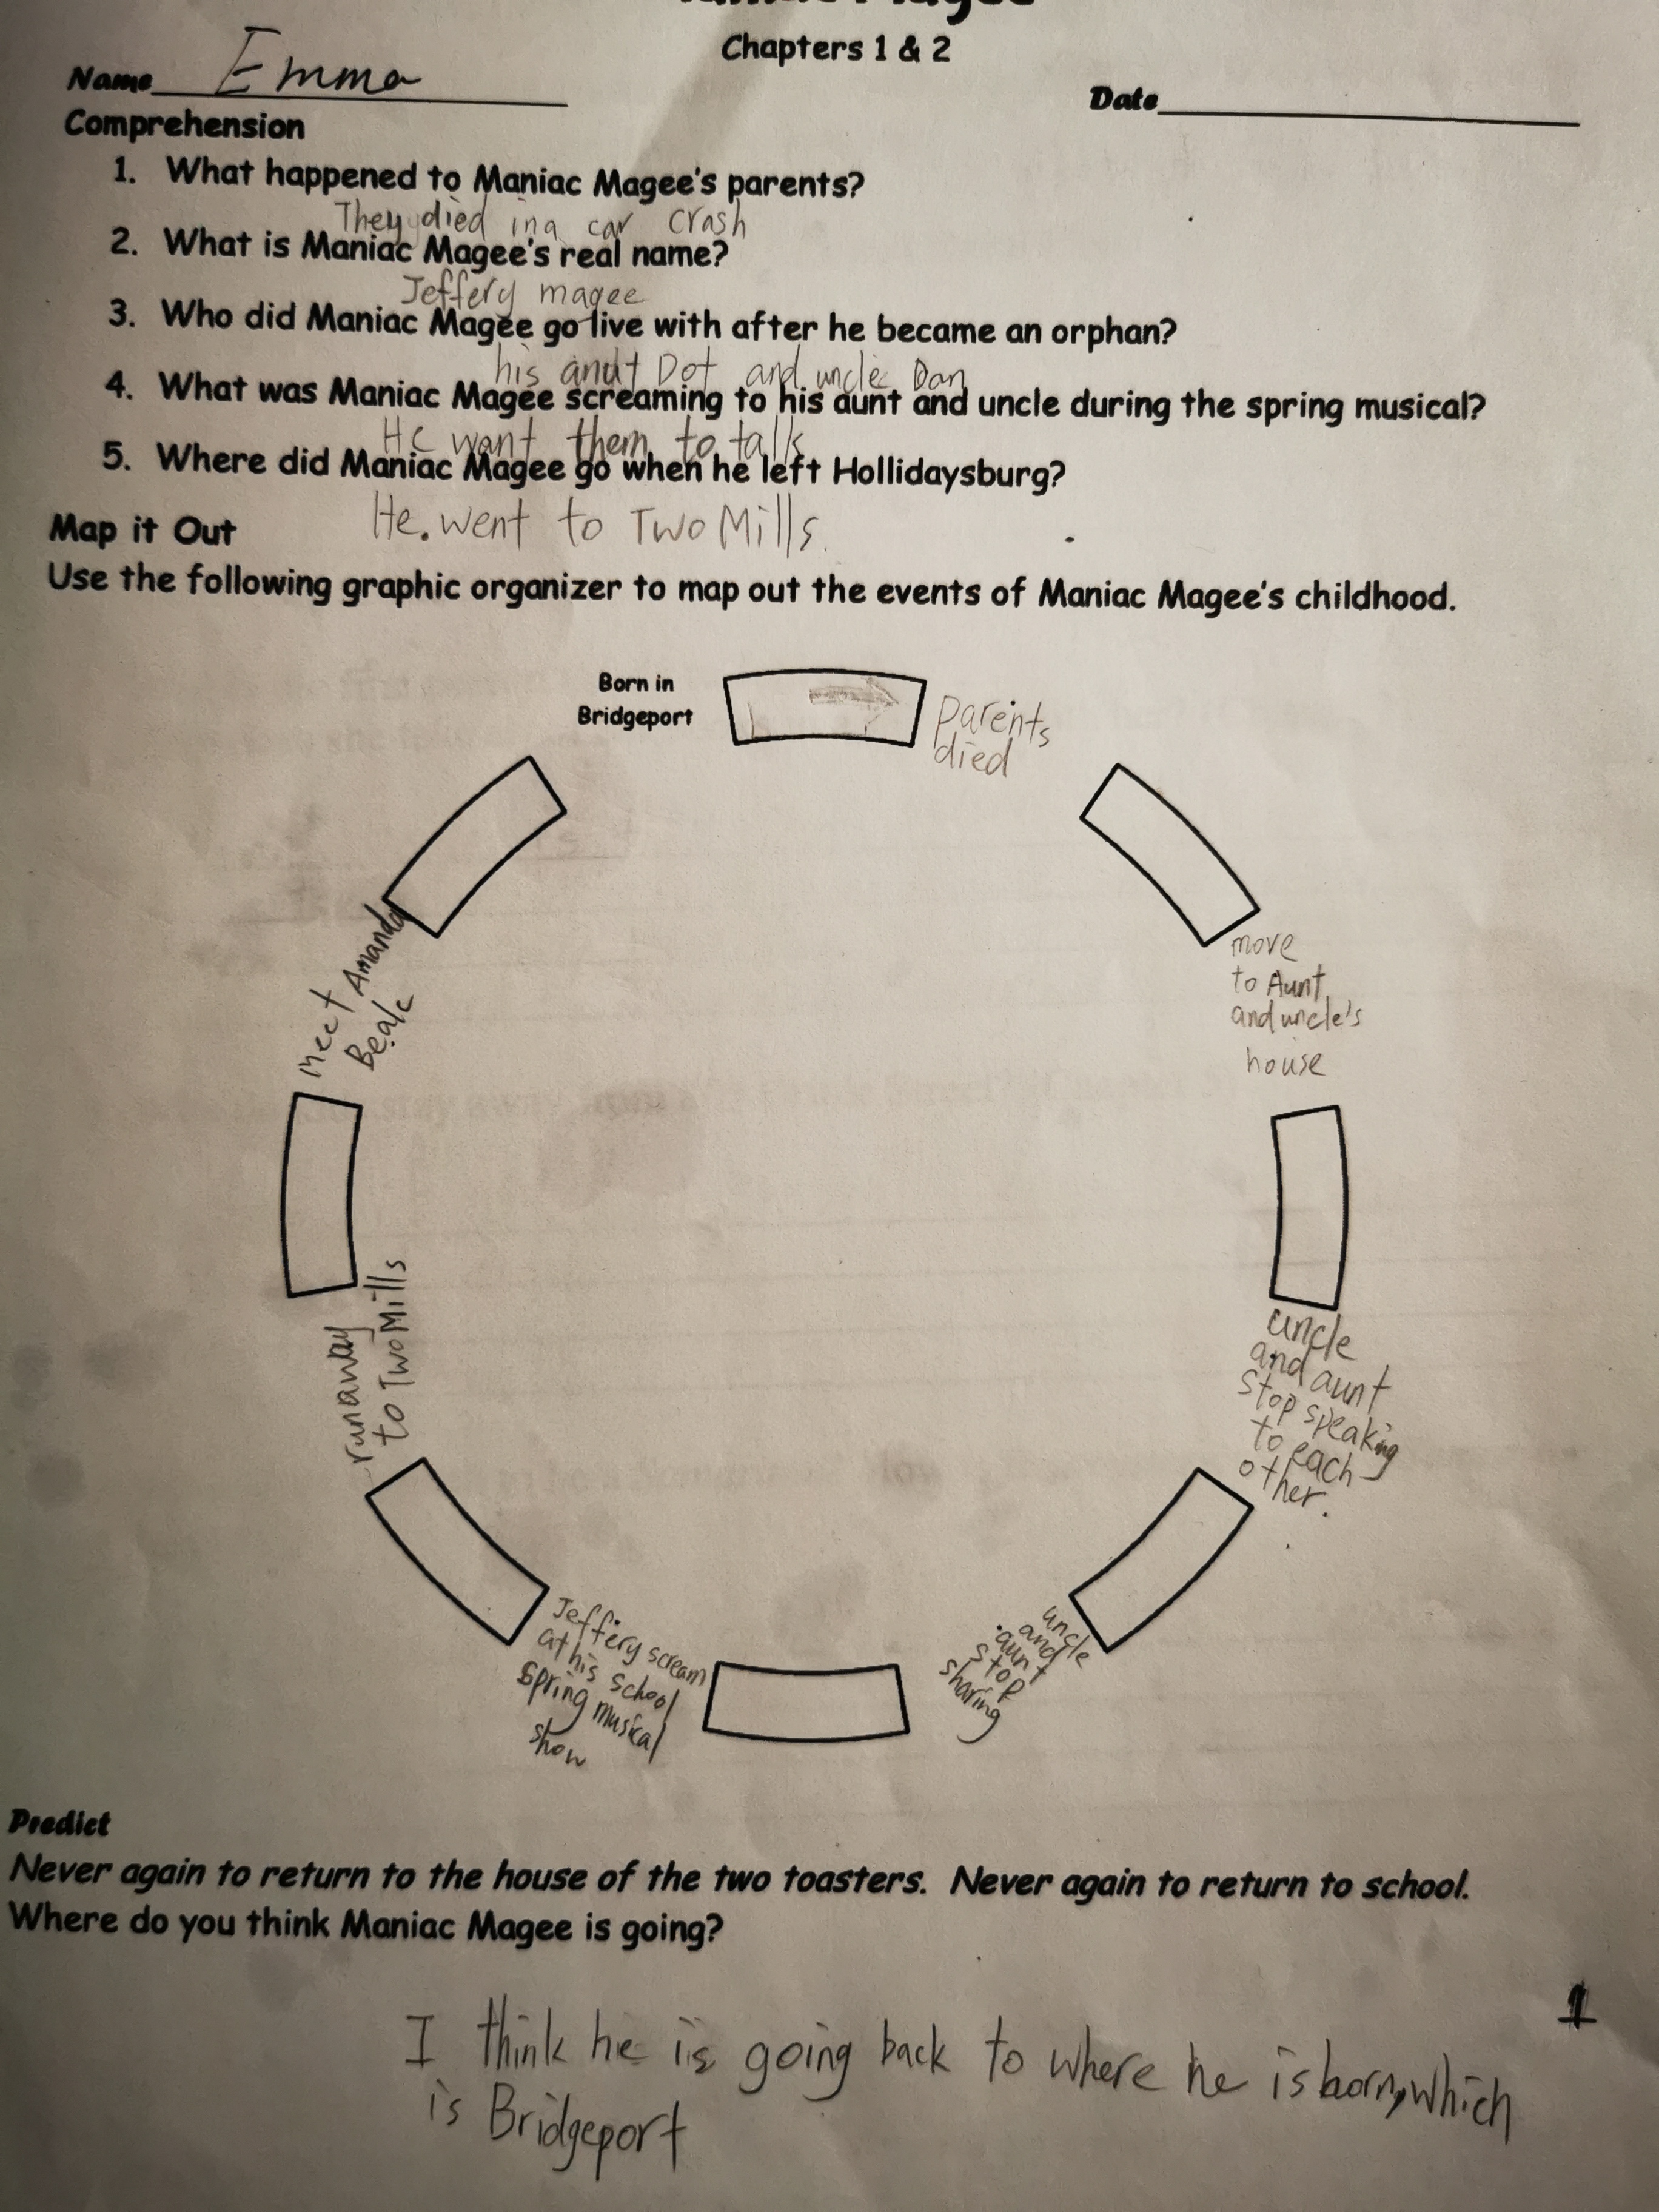 Maniac Magee
Chapters 1 & 2
Name Emma
Date
Comprehension
1. What happened to Maniac Magee's parents?
They died in a car crash
2. What is Maniac Magee's real name?
Jeffery magee
3. Who did Maniac Magee go live with after he became an orphan?
his anut Dot and uncle Dan
4. What was Maniac Magee screaming to his aunt and uncle during the spring musical?
He want them to talk
5. Where did Maniac Magee go when he left Hollidaysburg?
He went to Two Mills.
Map it Out
Use the following graphic organizer to map out the events of Maniac Magee's childhood.
Born in
Bridgeport
parents
died
move
to Aunt
and uncle's
house
uncle
and aunt
stop speaking
to each
other.
uncle
and
aunt
stop
sharing
Jeffery scream
at his school
spring musical
show
runaway
to Two Mills
meet Amanda
Beale
Predict
Never again to return to the house of the two toasters. Never again to return to school.
Where do you think Maniac Magee is going?
I think he is going back to where he is born, which
is Bridgeport
1